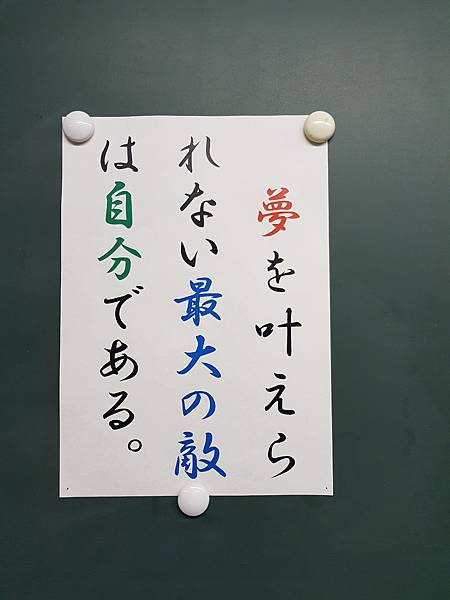 夢を叶えら
れない最大の敵
は自分である。